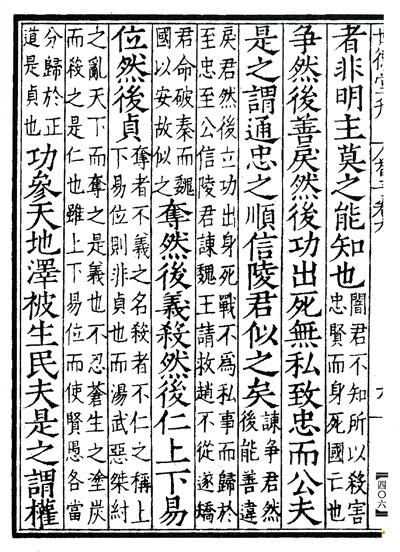 者非明主莫之能知也
闇君不知所以殺害
忠賢而身死國亡也
爭然後善戾然後功出死無私致忠而公夫
是之謂通忠之順信陵君似之矣
諫爭君然
後能善違
戾君然後立功出身死戰不為私事而歸於
至忠至公信陵君諫魏王請救趙不從遂矯
君命破秦而魏
國以安故似之
奪然後義殺然後仁上下易
位然後貞
奪者不義之名殺者不仁之稱上
下易位則非貞也而湯武惡桀紂
之亂天下而奪之是義也不忍蒼生之塗炭
而殺之是仁也雖上下易位而使賢愚各當
分歸於正
道是貞也
功參天地澤被生民夫是之謂權
四〇六